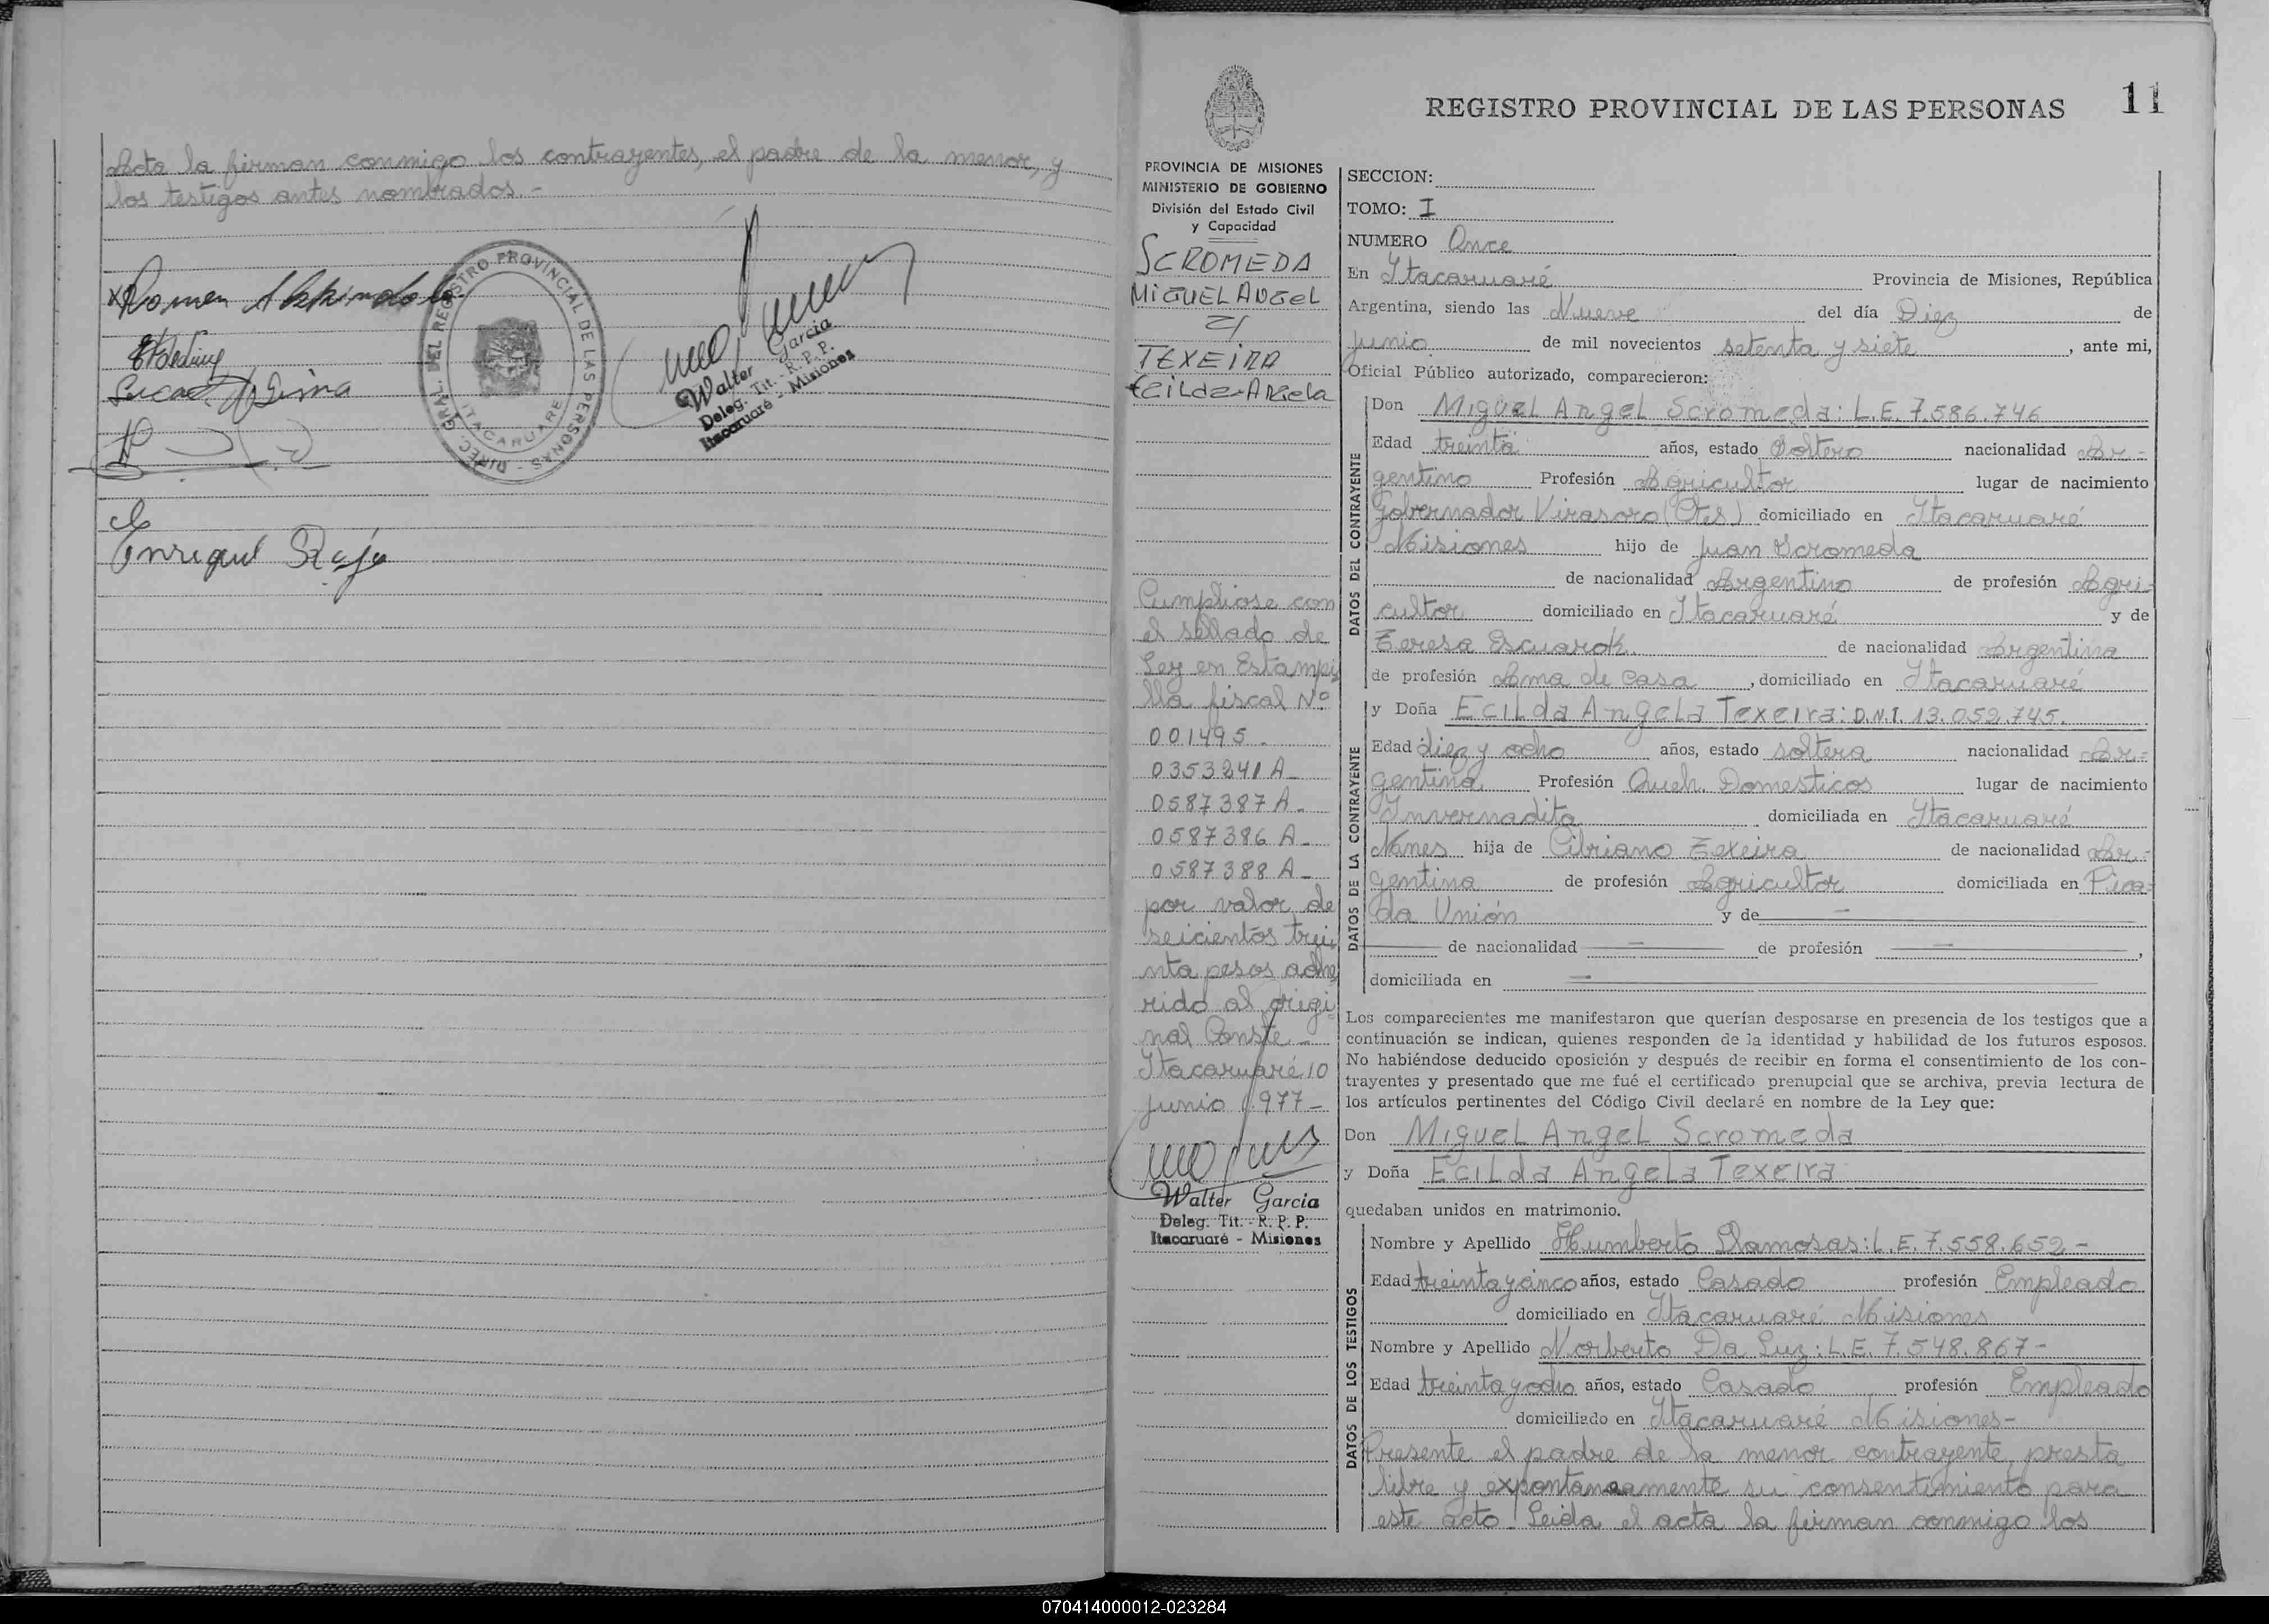 Acta la firman conmigo los contrayentes, el padre de la menor, y
los testigos antes nombrados.-
DIREC. GRAL. DEL REGISTRO PROVINCIAL DE LAS PERSONAS -
ITACARUARE
Walter Garcia
Deleg. Tit. - R. P. P.
Itacaruaré - Misiones
Enrique
11
REGISTRO PROVINCIAL DE LAS PERSONAS
PROVINCIA DE MISIONES
MINISTERIO DE GOBIERNO
División del Estado Civil
y Capacidad
SCROMEDA
MIGUEL ANGEL
y
TEXEIRA
Ecilda-Angela
Cumpliose con
el sellado de
Ley en Estampi
lla fiscal Nº
001495.
0353241 A-
0587387 A-
0587386 A-
0587388 A-
por valor de
seicientos trei
nta pesos adhe
rido al origi
nal Conste-
Itacaruaré 10
junio 1977-
Walter Garcia
Deleg. Tit. - R. P. P.
Itacaruaré - Misiones
SECCION:
TOMO: I
NUMERO Once
En Itacaruaré Provincia de Misiones, República
Argentina, siendo las Nueve del día Diez de
junio de mil novecientos setenta y siete, ante mi,
Oficial Público autorizado, comparecieron:
DATOS DEL CONTRAYENTE
Don Miguel Angel Scromeda: L.E. 7.586.746
Edad treinta años, estado Soltero nacionalidad Ar-
gentino Profesión Agricultor lugar de nacimiento
Gobernador Virasoro (Ctes) domiciliado en Itacaruaré
Misiones hijo de Juan Scromeda
de nacionalidad Argentino de profesión Agri-
cultor domiciliado en Itacaruaré y de
Teresa Escuarok de nacionalidad Argentina
de profesión Ama de Casa, domiciliado en Itacaruaré
DATOS DE LA CONTRAYENTE
y Doña Ecilda Angela Texeira: D.N.I. 13.052.745.
Edad diez y ocho años, estado soltera nacionalidad Ar-
gentina Profesión Queh. Domesticos lugar de nacimiento
Invernadita domiciliada en Itacaruaré
hija de Cibriano Texeira de nacionalidad Ar-
gentina de profesión Agricultor domiciliada en Pica-
da Unión y de —
— de nacionalidad — de profesión —,
domiciliada en —
Los comparecientes me manifestaron que querían desposarse en presencia de los testigos que a
continuación se indican, quienes responden de la identidad y habilidad de los futuros esposos.
No habiéndose deducido oposición y después de recibir en forma el consentimiento de los con-
trayentes y presentado que me fué el certificado prenupcial que se archiva, previa lectura de
los artículos pertinentes del Código Civil declaré en nombre de la Ley que:
Don Miguel Angel Scromeda
y Doña Ecilda Angela Texeira
quedaban unidos en matrimonio.
DATOS DE LOS TESTIGOS
Nombre y Apellido Humberto Llamosas: L.E. 7.558.652-
Edad treinta y cinco años, estado Casado profesión Empleado
domiciliado en Itacaruaré Misiones
Nombre y Apellido Norberto Da Luz: L.E. 7.548.867-
Edad treinta y ocho años, estado Casado profesión Empleado
domiciliado en Itacaruaré Misiones-
Presente el padre de la menor contrayente, presta
libre y expontaneamente su consentimiento para
este acto. Leida el acta la firman conmigo los
070414000012-023284